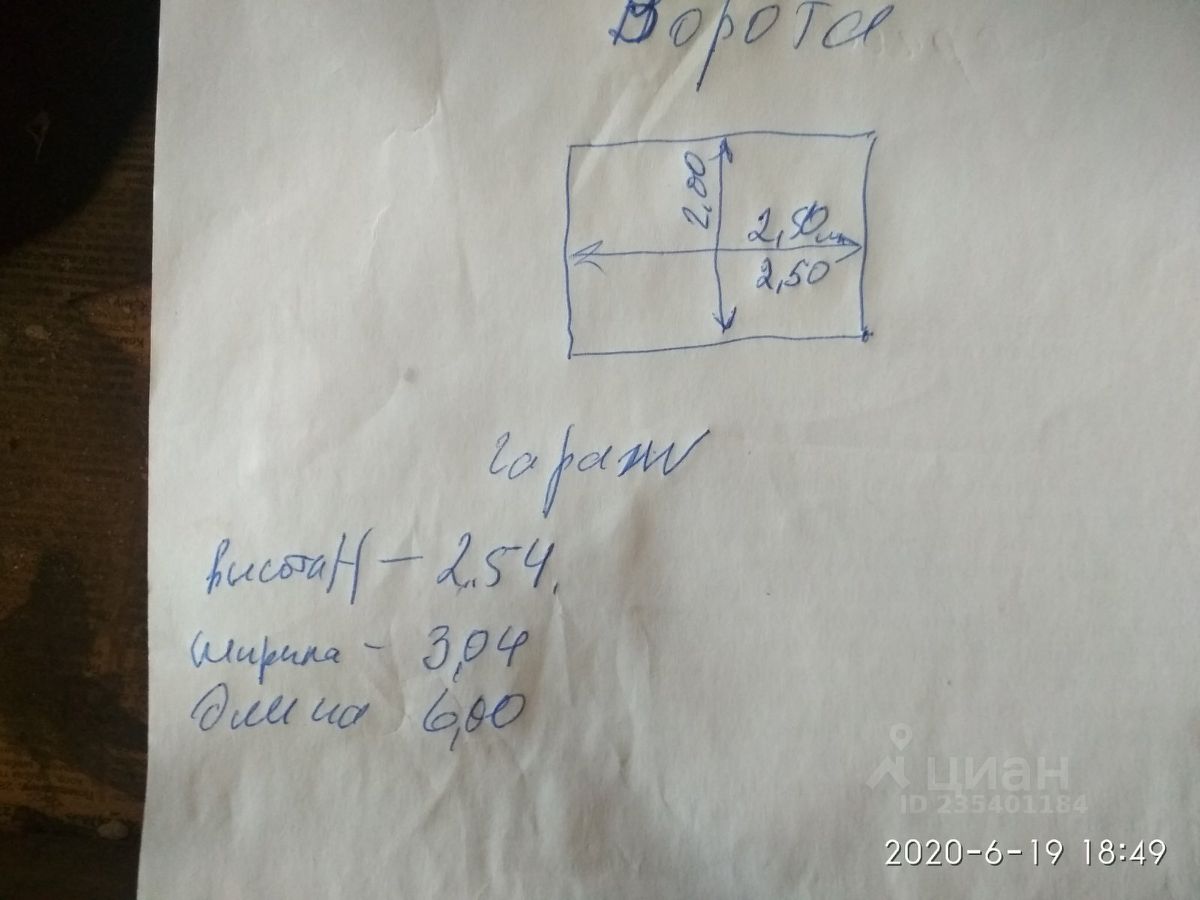 Ворота
2,00
2,50м
2,50
гараж
высота H - 2.54.
ширина - 3,04
Длина 6,00
циан
ID 235401184
2020-6-19 18:49